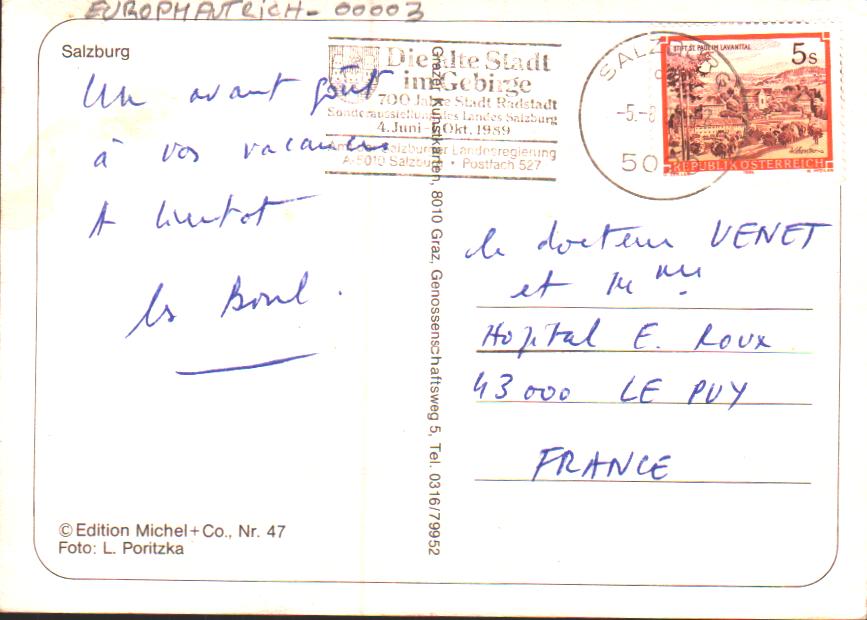 EUROPHAUTRICH - 00003
Salzburg
Un avant goût
à vos vacances
A bientot
les Boul.
© Edition Michel+Co., Nr. 47
Foto: L. Poritzka
Grazer Kunstkarten, 8010 Graz, Genossenschaftsweg 5, Tel. 0316/79952
Die alte Stadt
im Gebirge
700 Jahre Stadt Radstadt
Sonderausstellung des Landes Salzburg
4. Juni - Okt. 1989
Salzburger Landesregierung
A-5010 Salzburg • Postfach 527
SALZBURG
-5.-8
50
STIFT ST. PAUL IM LAVANTTAL
5s
REPUBLIK ÖSTERREICH
le docteur VENET
et Mme
Hopital E. Roux
43000 LE PUY
FRANCE